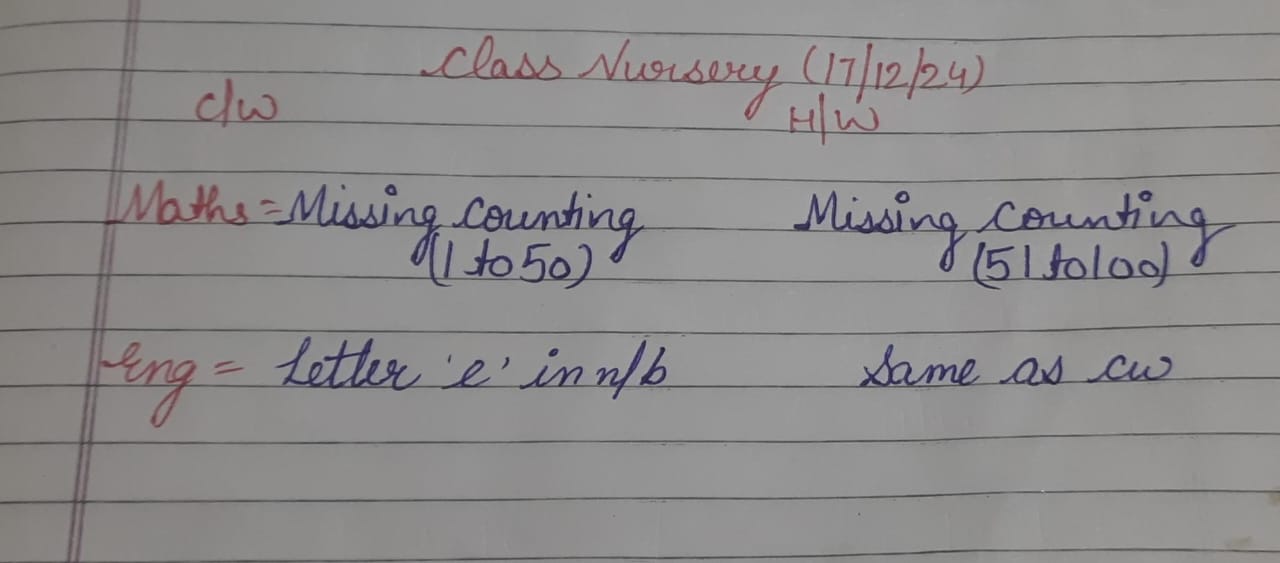 Class Nursery (17/12/24)
C/W H/W
Maths = Missing counting Missing counting
(1 to 50) (51 to 100)
Eng = Letter 'e' in n/b Same as cw